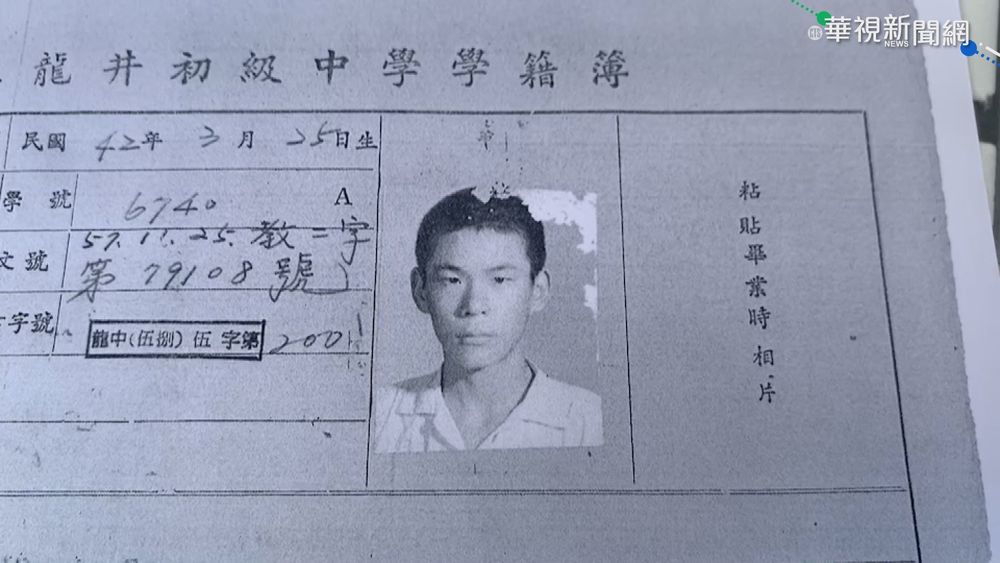 華視新聞網
NEWS
龍井初級中學學籍簿
民國 42年 3月 25日生
學號 6740 A
文號 57.11.25.教二字
第79108號
字號 龍中(伍捌)伍字第 2001
粘貼畢業時相片